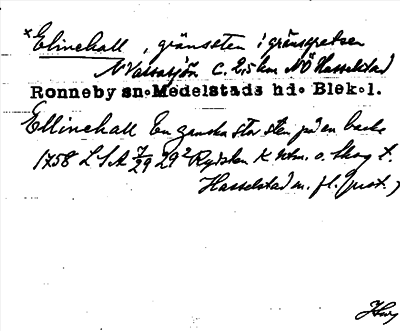 *Elinehall, gränssten i gränsgropen
N Vassasjön c. 2,5 km NÖ Hasselstad
Ronneby sn. Medelstads hd. Blek.l.
Ellinehall En ganska stor sten på en backe
1758 LSA 7/29 29² Rydslen K utm. o. Skog t.
Hasselstad m. fl. (just.)